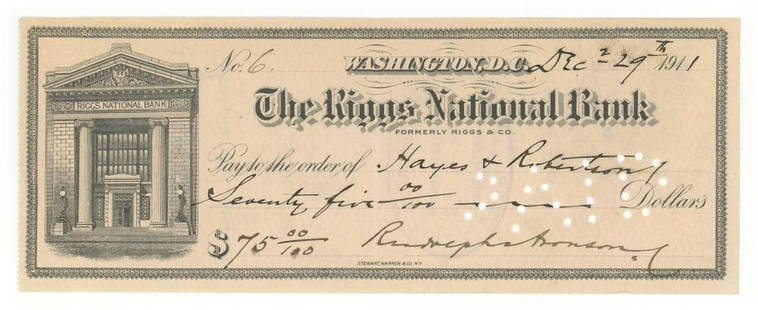 No. 6. WASHINGTON, D.C. Dec 29th 1911
RIGGS NATIONAL BANK
The Riggs National Bank
FORMERLY RIGGS & CO.
Pay to the order of Hayes & Robertson
Seventy five 00/100 Dollars
$75 00/100 Rudolph Aronson
STEWART WARREN & CO. N.Y.